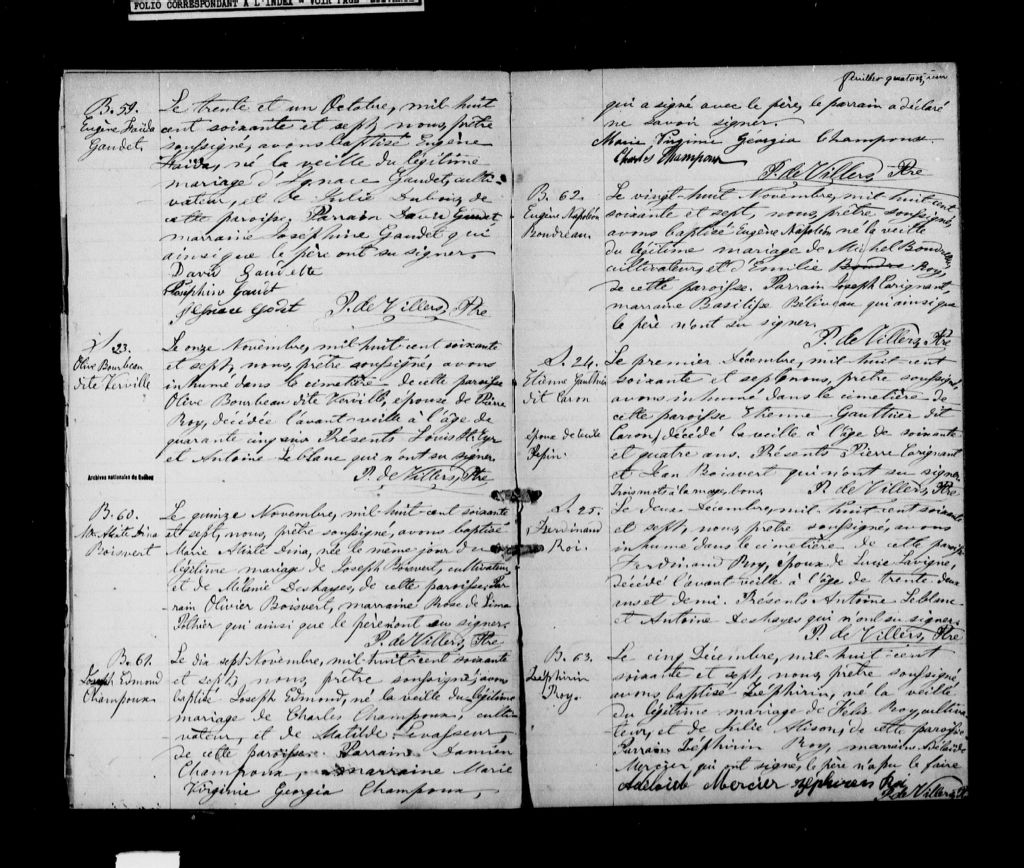 FOLIO CORRESPONDANT A L'INDEX = VOIR PAGE
B. 59.
Eugène
Gaudet,
Le trente et un Octobre, mil huit
cent soixante et sept, nous, prêtre
soussigné, avons baptisé Eugène
né la veille du légitime
mariage d'Ignace Gaudet, culti-
vateur, et de Julie Dubois, de
cette paroisse. Parrain David Gaudet
marraine Josephine Gaudet qui
ainsi que le père ont su signer.
David Gaudette
Gaudet
Ignace Godet P. de Villers, Ptre
S. 23.
Olive Bourbeau
dite Verville
Le onze Novembre, mil huit cent soixante
et sept, nous, prêtre soussigné, avons
inhumé dans le cimetière de cette paroisse
Olive Bourbeau dite Verville, epouse de Pierre
Roy, décédée l'avant-veille à l'âge de
quarante cinq ans. Présents Louis St. Cyr
et Antoine Leblanc qui n'ont su signer.
P. de Villers, Ptre
Archives nationales du Québec
B. 60.
Dina
Boisvert
Le quinze Novembre, mil huit cent soixante
et sept, nous, prêtre soussigné, avons baptisé
Marie Dina, née le même jour du
légitime mariage de Joseph Boisvert, cultivateur,
et de Mélanie Deshayes, de cette paroisse. Par-
rain Olivier Boisvert, marraine Rose de Lima
Pothier qui ainsi que le père n'ont su signer.
P. de Villers, Ptre
B. 61.
Joseph Edmond
Champoux
Le dix sept Novembre, mil huit cent soixante
et sept, nous, prêtre soussigné, avons
baptisé Joseph Edmond, né la veille du légitime
mariage de Charles Champoux, culti-
vateur, et de Matilde Levasseur,
de cette paroisse. Parrain Damien
Champoux, marraine Marie
Virginie Georgia Champoux,
feuillet quatorzième
qui a signé avec le père, le parrain a déclaré
ne savoir signer.
Marie Virginie Géorgia Champoux
Charles Champoux
P. de Villers, Ptre
B. 62.
Eugène Napoléon
Boudreau.
Le vingt-huit Novembre, mil huit cent
soixante et sept, nous, prêtre soussigné,
avons baptisé Eugène Napoléon né la veille
du légitime mariage de Michel Boudreau,
cultivateur, et d'Emilie Roy,
de cette paroisse. Parrain Joseph Corignant
marraine Basilisse Béliveau qui ainsi que
le père n'ont su signer.
P. de Villers, Ptre
S. 24.
Etienne Gauthier
dit Caron
époux de
Pepin.
Le premier Décembre, mil huit cent
soixante et sept, nous, prêtre soussigné,
avons inhumé dans le cimetière de
cette paroisse Etienne Gauthier dit
Caron, décédé la veille à l'âge de soixante
et quatre ans. Présents Pierre Corignant
et Jean Boisvert qui n'ont su signer.
Trois mots à la marge, bons. P. de Villers, Ptre
S. 25.
Ferdinand
Roi.
Le deux Décembre, mil huit cent soixante
et sept, nous, prêtre soussigné, avons
inhumé dans le cimetière de cette paroisse
Ferdinand Roy, époux de Lucie Lavigne,
décédé l'avant veille à l'âge de trente deux
ans et demi. Présents Antoine Leblanc
et Antoine Deshayes qui n'ont su signer.
P. de Villers, Ptre
B. 63.
Zéphirin
Roy.
Le cinq Décembre, mil huit cent
soixante et sept, nous, prêtre soussigné,
avons baptisé Zéphirin, né la veille
du légitime mariage de Félix Roy, cultiva-
teur, et de Julie de cette paroisse
Parrain Zéphirin Roy, marraine Adélaïde
Mercier qui ont signé, le père n'a pu le faire
Adelaide Mercier Zephiren Roi
P. de Villers, P